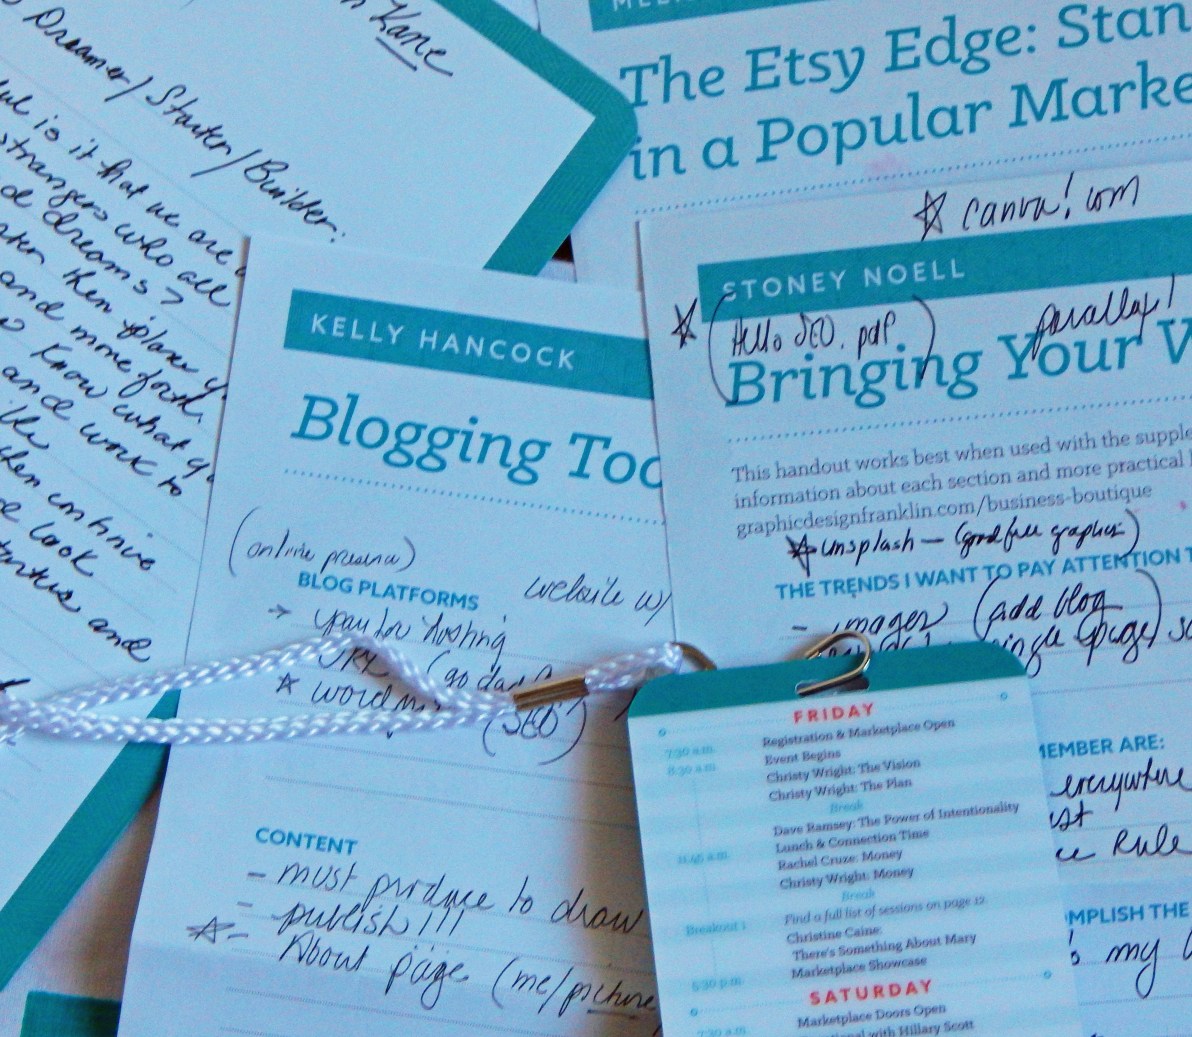 Kane
Dreamer/Starter/Builder.
is it that we are
strangers who all
dreams?
then
and more
Know what
and work to
then continue
look
and
The Etsy Edge: Stan
in a Popular Marke
☆ canva! com
STONEY NOELL
☆ (Hello SEO. pdf)
parallax!
Bringing Your V
This handout works best when used with the supple
information about each section and more practical
graphicdesignfranklin.com/business-boutique
☆ unsplash – (good free graphics)
THE TRENDS I WANT TO PAY ATTENTION T
- images (add blog
single page)
EMBER ARE:
everywhere
Rule
MPLISH THE
my
KELLY HANCOCK
Blogging Too
(online presence)
BLOG PLATFORMS
website w/
→ pay for hosting
(go dad
☆ word
(SEO)
CONTENT
- must produce to draw
- publish!!!
☆- About page (me/picture
FRIDAY
7:30 a.m. Registration & Marketplace Open
8:30 a.m. Event Begins
Christy Wright: The Vision
Christy Wright: The Plan
Break
Dave Ramsey: The Power of Intentionality
11:45 a.m. Lunch & Connection Time
Rachel Cruze: Money
Christy Wright: Money
Break
Breakout 1 Find a full list of sessions on page 12.
Christine Caine:
There's Something About Mary
5:30 p.m. Marketplace Showcase
SATURDAY
7:30 a.m. Marketplace Doors Open
with Hillary Scott